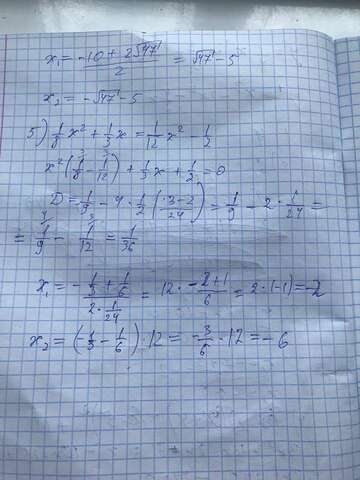 x₁ = (-10 + 2√47)/2 = √47 - 5
x₂ = -√47 - 5
5) 1/8 x² + 1/3 x = 1/12 x² - 1/2
x² (1/8 - 1/12) + 1/3 x + 1/2 = 0
D = 1/9 - 4 · 1/2 (3-2/24) = 1/9 - 2 · 1/24 =
= 1/9 - 1/12 = 1/36
x₁ = (-1/3 + 1/6)/(2 · 1/24) = 12 · (-2+1)/6 = 2 · (-1) = -2
x₂ = (-1/3 - 1/6) · 12 = -3/6 · 12 = -6